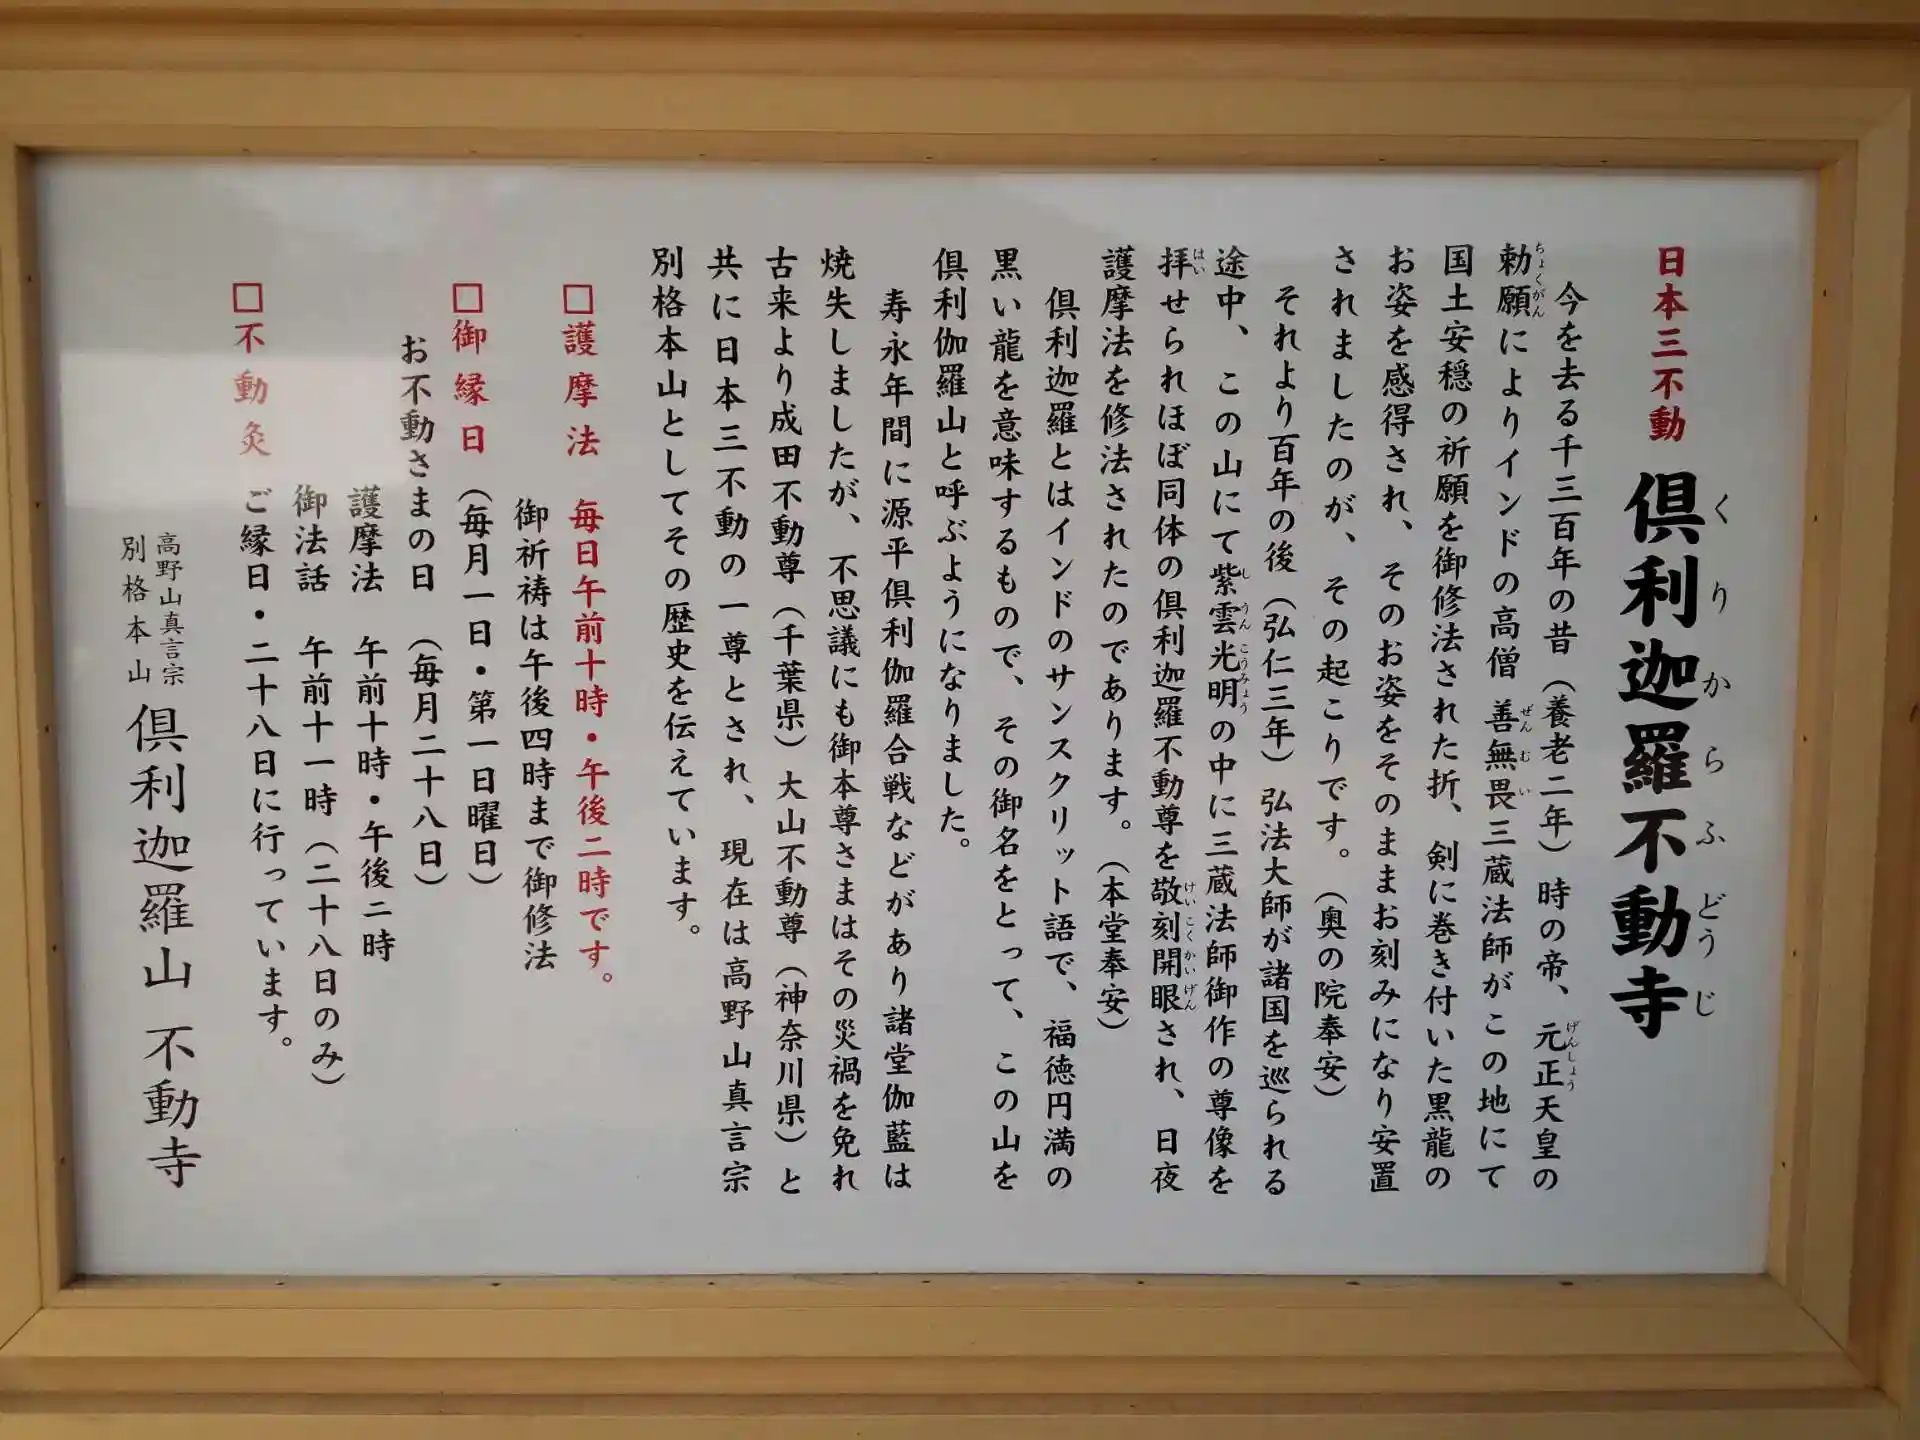 日本三不動 倶利迦羅不動寺
くりからふどうじ
今を去る千三百年の昔（養老二年）時の帝、元正天皇の
げんしょう
勅願によりインドの高僧 善無畏三蔵法師がこの地にて
ちょくがん ぜんむい
国土安穏の祈願を御修法された折、剣に巻き付いた黒龍の
お姿を感得され、そのお姿をそのままお刻みになり安置
されましたのが、その起こりです。（奥の院奉安）
それより百年の後（弘仁三年）弘法大師が諸国を巡られる
途中、この山にて紫雲光明の中に三蔵法師御作の尊像を
しうんこうみょう
拝せられほぼ同体の倶利迦羅不動尊を敬刻開眼され、日夜
はい けいこくかいげん
護摩法を修法されたのであります。（本堂奉安）
倶利迦羅とはインドのサンスクリット語で、福徳円満の
黒い龍を意味するもので、その御名をとって、この山を
倶利伽羅山と呼ぶようになりました。
寿永年間に源平倶利伽羅合戦などがあり諸堂伽藍は
焼失しましたが、不思議にも御本尊さまはその災禍を免れ
古来より成田不動尊（千葉県）大山不動尊（神奈川県）と
共に日本三不動の一尊とされ、現在は高野山真言宗
別格本山としてその歴史を伝えています。
□護摩法 毎日午前十時・午後二時です。
御祈祷は午後四時まで御修法
□御縁日（毎月一日・第一日曜日）
お不動さまの日 （毎月二十八日）
護摩法 午前十時・午後二時
御法話 午前十一時（二十八日のみ）
□不動灸 ご縁日・二十八日に行っています。
高野山真言宗
別格本山
倶利迦羅山 不動寺